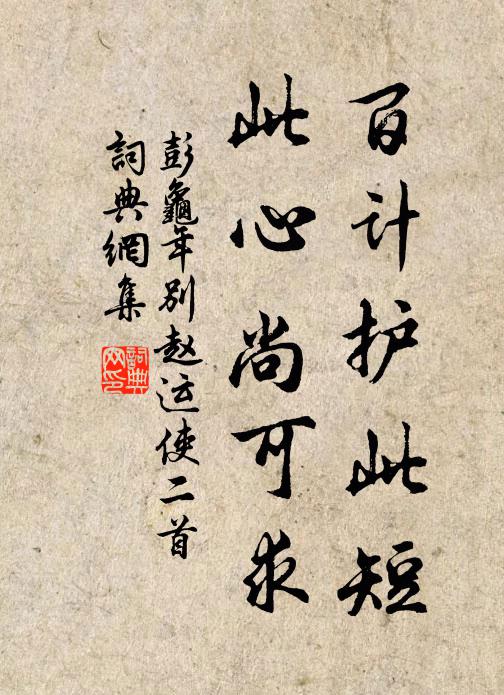 百计护此短
此心尚可求
彭龜年别赵运使二首
詞典網集
詞典网印